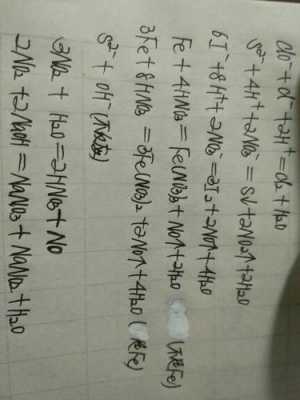 ClO⁻+Cl⁻+2H⁺=Cl₂+H₂O
S²⁻+4H⁺+2NO₃⁻=S↓+2NO₂↑+2H₂O
6I⁻+8H⁺+2NO₃⁻=3I₂+2NO↑+4H₂O
Fe+4HNO₃=Fe(NO₃)₃+NO↑+2H₂O (不足Fe)
3Fe+8HNO₃=3Fe(NO₃)₂+2NO↑+4H₂O (过Fe)
S²⁻+OH⁻(不反应)
3NO₂+H₂O=2HNO₃+NO
2NO₂+2NaOH=NaNO₃+NaNO₂+H₂O